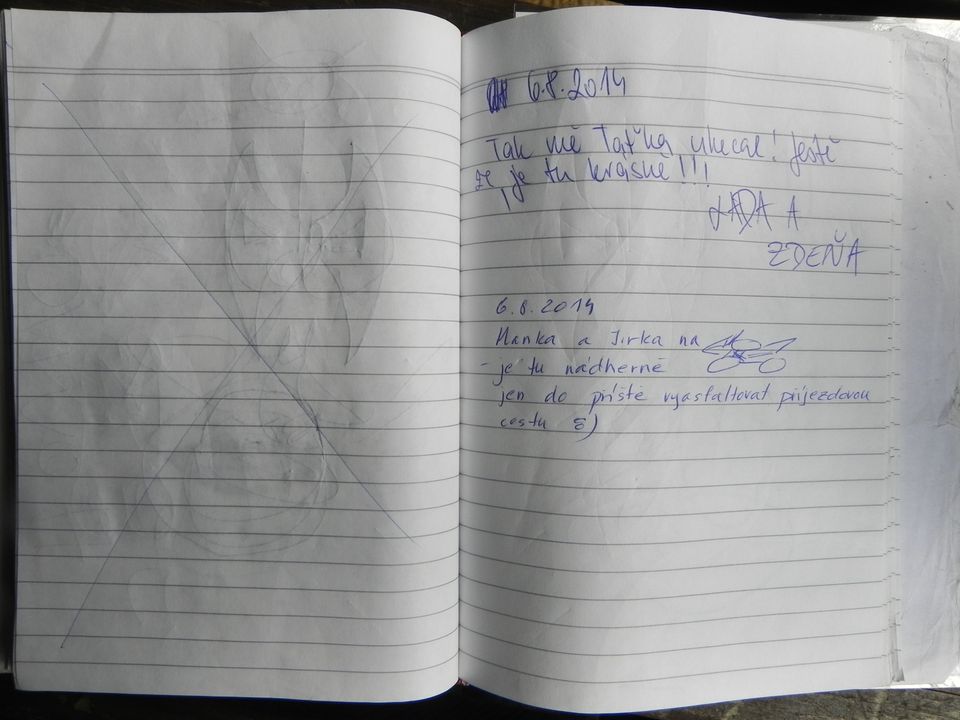 6.8.2014
Tak mě Taťka ukecal! Ještě
že je tu krásně!!!
LÁĎA A
ZDEŇA
6.8.2014
Hanka a Jirka na
- je tu nádherně
jen do příště vyasfaltovat příjezdovou
cestu 8)